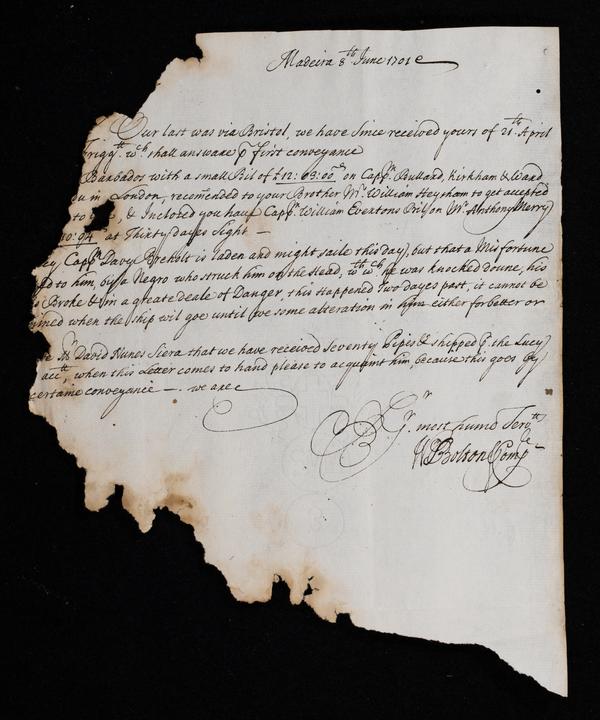 Madeira 8th June 1701
Our last was via Bristol, we have since received yours of 21th April
Frigg.tt wch shall answare ꝑ first conveyance
Barbados with a small Bil of £12:03:00 on Cappn. Bullard, Kirkham & Ward
in London, recomended to your Brother Mr. William Heysham to get accepted
to & Inclosed you have Cappn. William Evertons Bil on Mr. Anthony Merry
at Thirty dayes Sight —
Cappn. Davy Breholt is laden and might saile this day, but that a Misfortune
to him, by a Negro who struck him on the Head, wth. wch he was knocked doune, his
Broke & in a greate deale of Danger, this Happened Two dayes past, it cannot be
when the ship wil goe until we some alteration in him either for better or
David Nunes Siera that we have received seventy Pipes & shipped ꝑ the Lucy
acctt, when this Letter comes to hand please to acquaint him, because this goes by
certaine conveyance —. we are
Sr.
Yr. most humb Servtt
Bolton & Compe